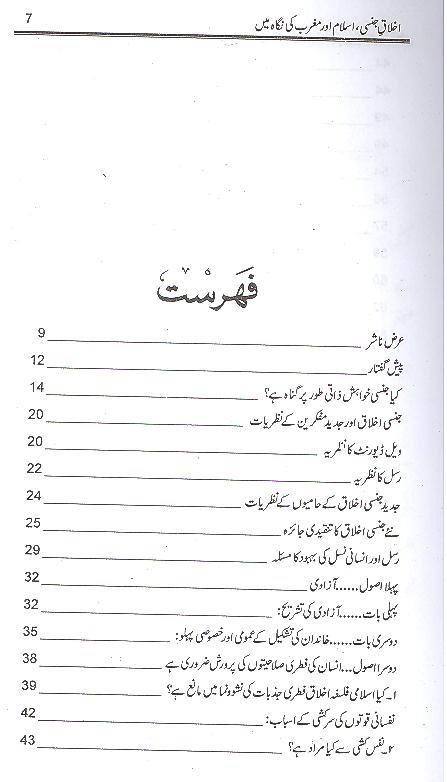 7 اخلاقِ جنسی، اسلام اور مغرب کی نگاہ میں
فہرست
عرض ناشر 9
پیش گفتار 12
کیا جنسی خواہش ذاتی طور پر گناہ ہے؟ 14
جنسی اخلاق اور جدید مفکرین کے نظریات 20
ویل ڈیورنٹ کا نظریہ 20
رسل کا نظریہ 22
جدید جنسی اخلاق کے حامیوں کے نظریات 24
نئے جنسی اخلاق کا تنقیدی جائزہ 25
رسل اور انسانی نسل کی بہبود کا مسئلہ 29
پہلا اصول......آزادی 32
پہلی بات......آزادی کی تشریح: 32
دوسری بات......خاندان کی تشکیل کے عمومی اور خصوصی پہلو: 35
دوسرا اصول...انسان کی فطری صلاحیتوں کی پرورش ضروری ہے 38
۱۔کیا اسلامی فلسفہ اخلاق فطری جذبات کی نشوونما میں مانع ہے؟ 39
نفسانی قوتوں کی سرکشی کے اسباب: 42
۲۔نفس کشی سے کیا مراد ہے؟ 43